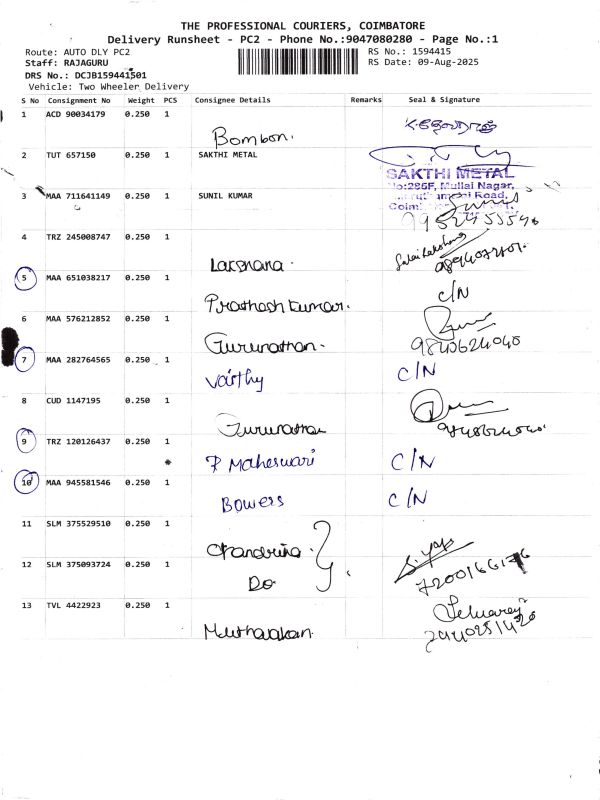 THE PROFESSIONAL COURIERS, COIMBATORE
Delivery Runsheet - PC2 - Phone No.:9047080280 - Page No.:1
Route: AUTO DLY PC2 RS No.: 1594415
Staff: RAJAGURU RS Date: 09-Aug-2025
DRS No.: DCJB159441501
Vehicle: Two Wheeler Delivery
S No Consignment No Weight PCS Consignee Details Remarks Seal & Signature
1 ACD 90034179 0.250 1
Bombon.
2 TUT 657150 0.250 1 SAKTHI METAL
SAKTHI METAL
No:286F, Mullai Nagar,
Road,
3 MAA 711641149 0.250 1 SUNIL KUMAR
4 TRZ 245008747 0.250 1
Lakshana.
5 MAA 651038217 0.250 1 C/N
Prathash kumar.
6 MAA 576212852 0.250 1
Gurunathan. 9843624040
7 MAA 282764565 0.250 1 C/N
Varthy
8 CUD 1147195 0.250 1
Gurunathan
9 TRZ 120126437 0.250 1
P Maheswari C/N
10 MAA 945581546 0.250 1
Bowers C/N
11 SLM 375529510 0.250 1
Chandrika
12 SLM 375093724 0.250 1
Do
13 TVL 4422923 0.250 1